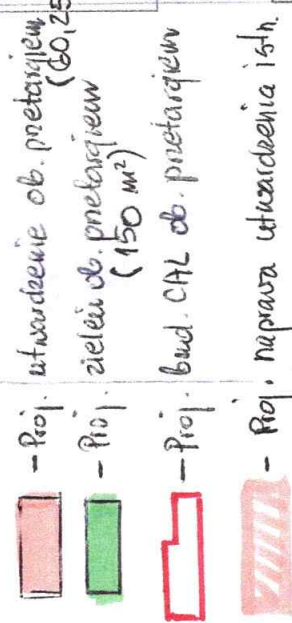 - Proj. utwardzenie ob. przetargiem
(60,25
- Proj. zieleń ob. przetargiem
(150 m²)
- Proj. bud. CAL ob. przetargiem
- Proj. naprawa utwardzenia istn.